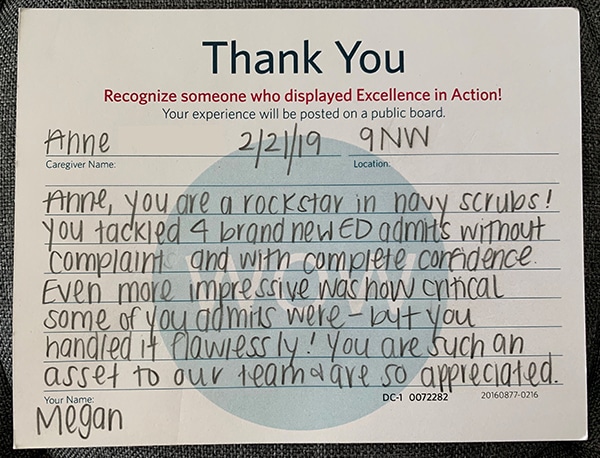 Thank You
Recognize someone who displayed Excellence in Action!
Your experience will be posted on a public board.
Anne 2/21/19 9NW
Caregiver Name: Location:
Anne, you are a rockstar in navy scrubs!
You tackled 4 brand new ED admits without
complaint and with complete confidence.
Even more impressive was how critical
some of you admits were - but you
handled it flawlessly! You are such an
asset to our team & are so appreciated.
WOW
Your Name: DC-1 0072282 20160877-0216
Megan